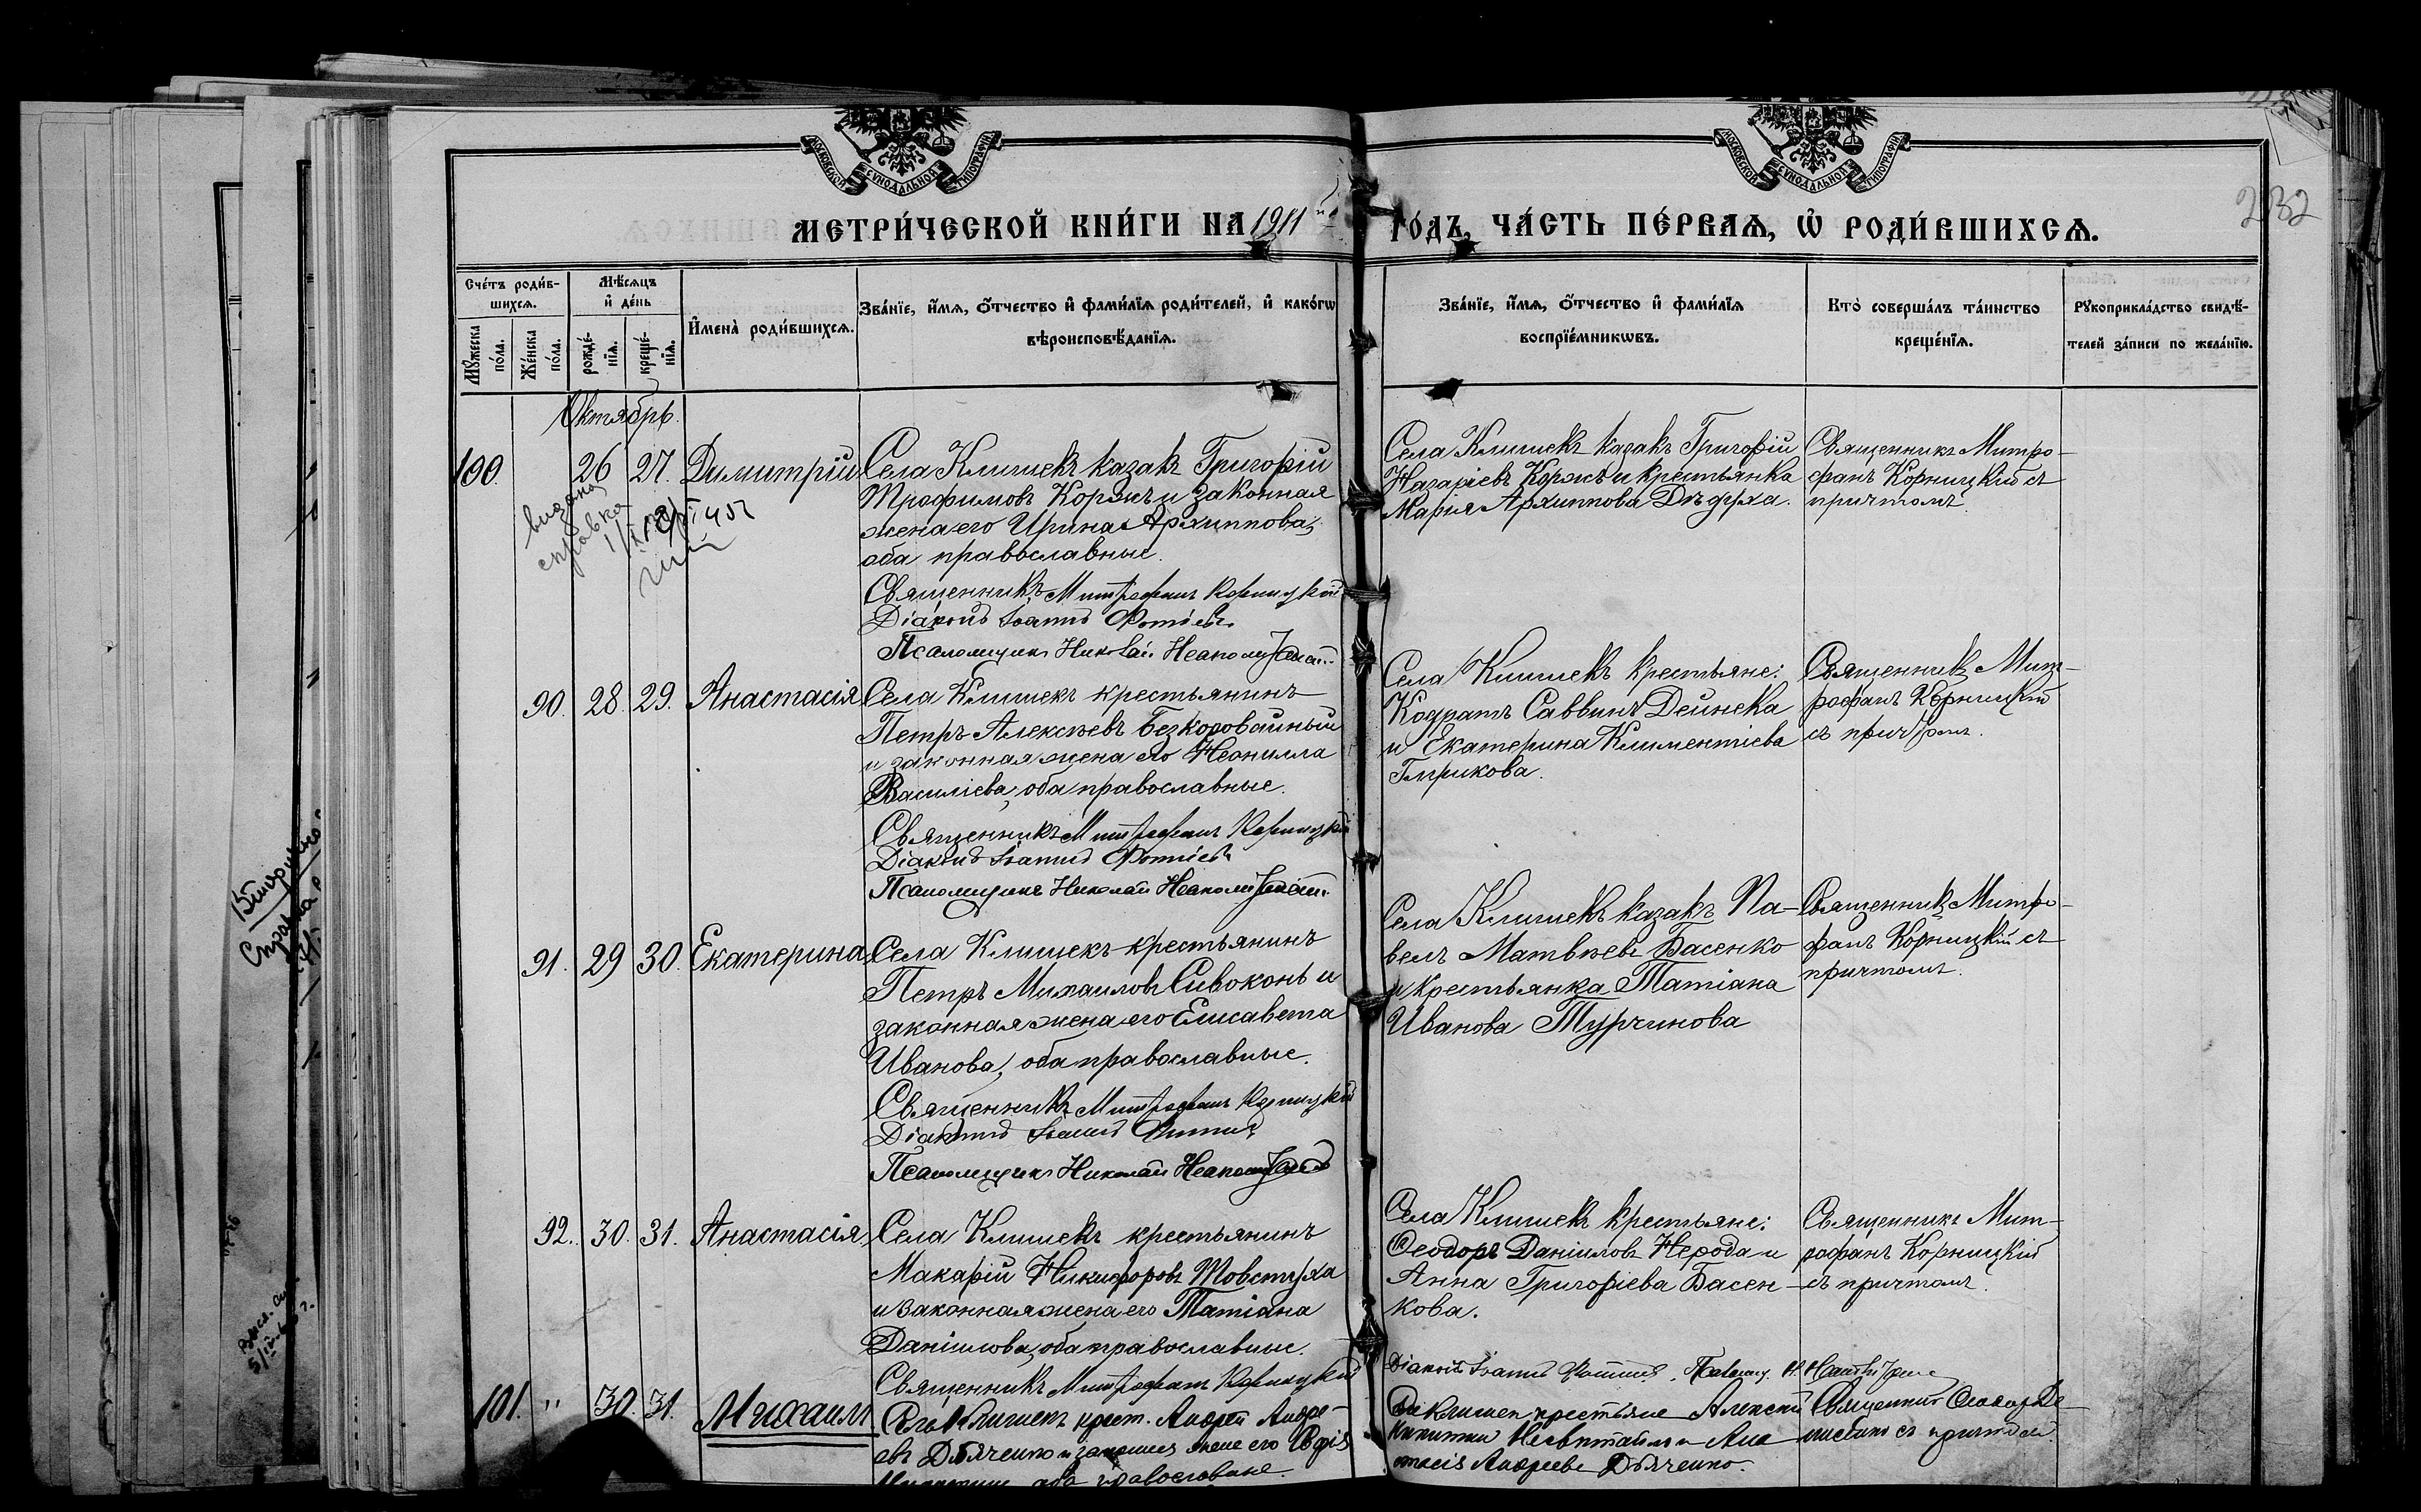 МОСКОВСКОЙ СУНОДАЛЬНОЙ ТИПОГРАФІИ
МОСКОВСКОЙ СУНОДАЛЬНОЙ ТИПОГРАФІИ
232
МЕТРИ́ЧЕСКОЙ КНИ́ГИ НА 1911 й ГО́ДЪ, ЧА́СТЬ ПЕ́РВАЯ, Ѡ РОДИ́ВШИХСЯ.
Сче́тъ роди́в-
шихся.
Мꙋ́жеска по́ла.
Же́нска по́ла.
Мѣ́сяцъ и де́нь
рожде́-
нїя.
креще́-
нїя.
И҆мена̀ роди́вшихся.
Зва́нїе, и҆́мя, ѻ҆́тчество и҆ фами́лїя роди́телей, и҆ како́гѡ
вѣроисповѣ́данїя.
Зва́нїе, и҆́мя, ѻ҆́тчество и҆ фами́лїя
воспрїе́мникѡвъ.
Кто̀ соверша́лъ та́инство
креще́нїя.
Рꙋкоприкла́дство свидѣ́-
телей за́писи по жела́нїю.
Октябрь.
100. 26 27. Димитрій
Села Клишекъ казакъ Григорій
Трофимовъ Коржъ и законная
жена его Ирина Архиппова,
оба православные.
Священникъ Митрофанъ Корницкій
Діаконъ Іоаннъ Фотіевъ
Псаломщикъ Николай
Села Клишекъ казакъ Григорій
Назаріевъ Коржъ и крестьянка
Марія Архиппова Дѣдуха.
Священникъ Митро-
фанъ Корницкій съ
причтомъ.
видана
справка
90. 28. 29. Анастасія
Села Клишекъ крестьянинъ
Петръ Алексѣевъ Безкоровайный
и законная жена его Неонилла
Василіева, оба православные.
Священникъ Митрофанъ Корницкій
Діаконъ Іоаннъ Фотіевъ
Псаломщикъ Николай
Села Клишекъ крестьяне:
Кодратъ Саввинъ Дейнека
и Екатерина Климентіева
Гирикова.
Священникъ Мит-
рофанъ Корницкій
съ причтомъ.
91. 29 30. Екатерина
Села Клишекъ крестьянинъ
Петръ Михаиловъ Сивоконь и
законная жена его Елисавета
Иванова, оба православные.
Священникъ Митрофанъ Корницкій
Діаконъ Іоаннъ
Псаломщикъ Николай
Села Клишекъ казакъ Па-
велъ Матвѣевъ Басенко
и крестьянка Татіана
Иванова Турчинова
Священникъ Митро-
фанъ Корницкій съ
причтомъ.
92. 30. 31. Анастасія
Села Клишекъ крестьянинъ
Макарій Никифоровъ Товстуха
и законная жена его Татіана
Даніилова, оба православные.
Священникъ Митрофанъ Корницкій
Села Клишекъ крестьяне:
Ѳеодоръ Даніиловъ Нерода и
Анна Григоріева Басен-
кова.
Діаконъ Іоаннъ
Священникъ Мит-
рофанъ Корницкій
съ причтомъ.
101. " 30. 31. Михаилъ
Села Клишекъ крест. Андрей Андре-
евъ Дьяченко и законная жена его
оба православные.
крестьяне Алексей
Андреева Дьяченко.
Священникъ
съ причтомъ.
Вторично
Справка